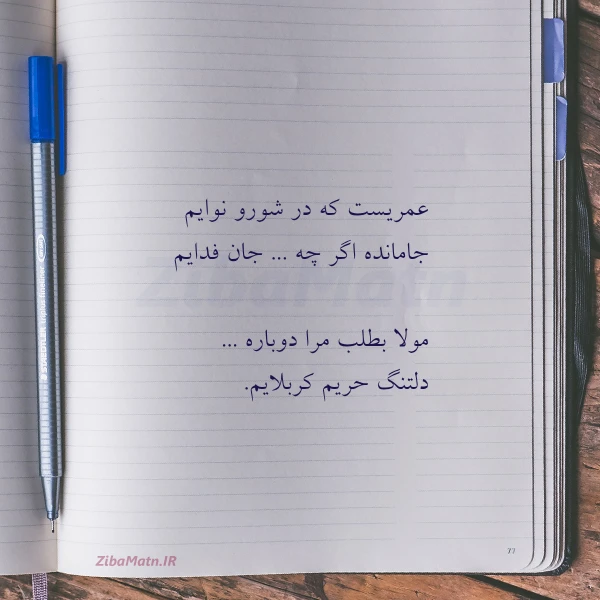 عمریست که در شورو نوایم
جامانده اگر چه ... جان فدایم
مولا بطلب مرا دوباره ...
دلتنگ حریم کربلایم.
ZibaMatn
ZibaMatn.IR
77